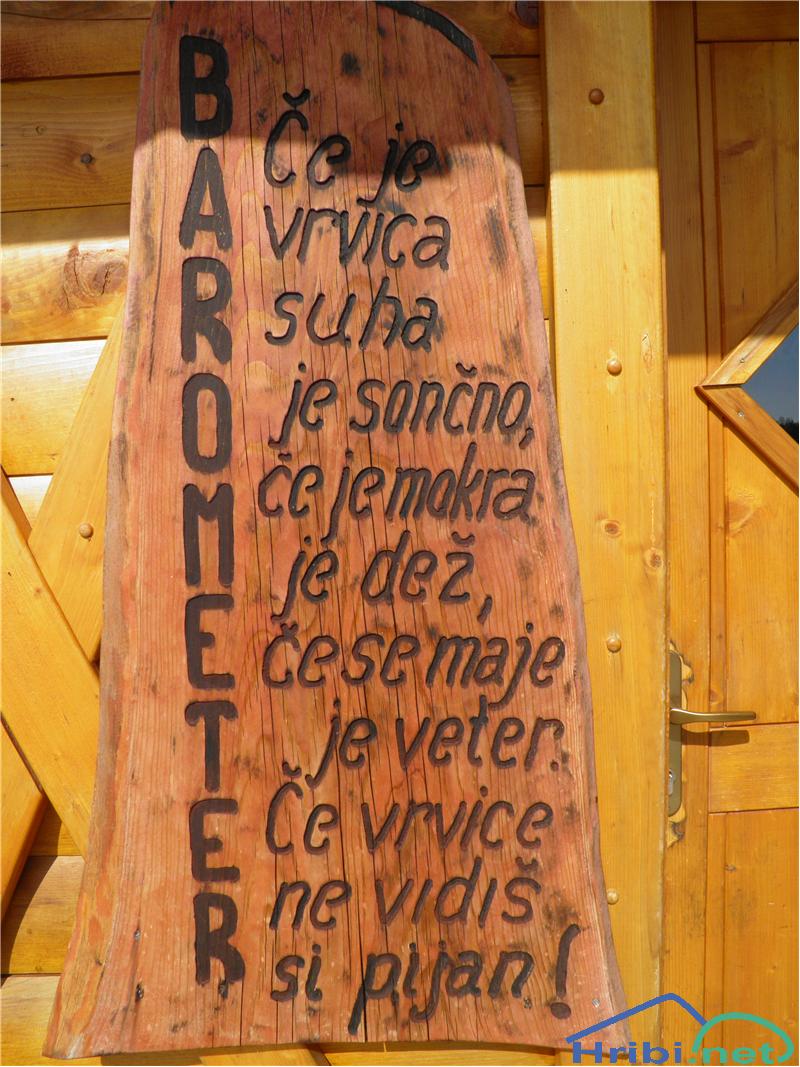 BAROMETER
Če je
vrvica
suha
je sončno,
če je mokra
je dež,
če se maje
je veter.
Če vrvice
ne vidiš
si pijan!
Hribi.net